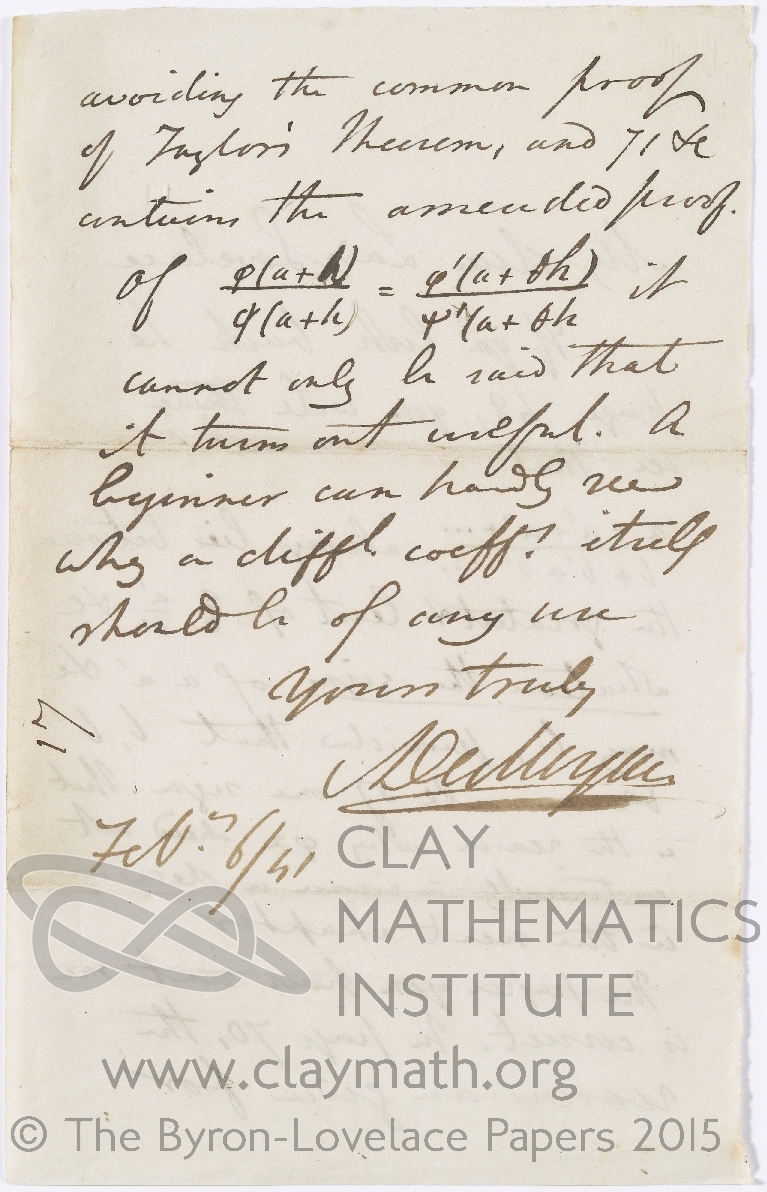 avoiding the common proof
of Taylor's Theorem, and 71 &c
contains the amended proof.
Of φ(a+h)/ψ(a+h) = φ'(a+θh)/ψ'(a+θh it
cannot only be said that
it turns out useful. A
beginner can hardly see
why a diffl. coefft. itself
should be of any use
Yours truly
ADeMorgan
Feby 6/41
17
CLAY
MATHEMATICS
INSTITUTE
www.claymath.org
© The Byron-Lovelace Papers 2015